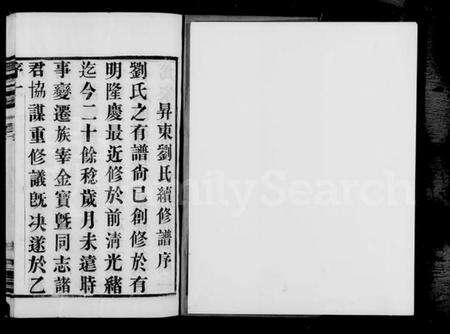 昇東劉氏續修譜序
劉氏之有譜尙已創修於有
明隆慶最近修於前淸光緖
迄今二十餘稔歲月未遠時
事變遷族宰金寶曁同志諸
君協謀重修議旣決遂於乙
序
一
FamilySearch